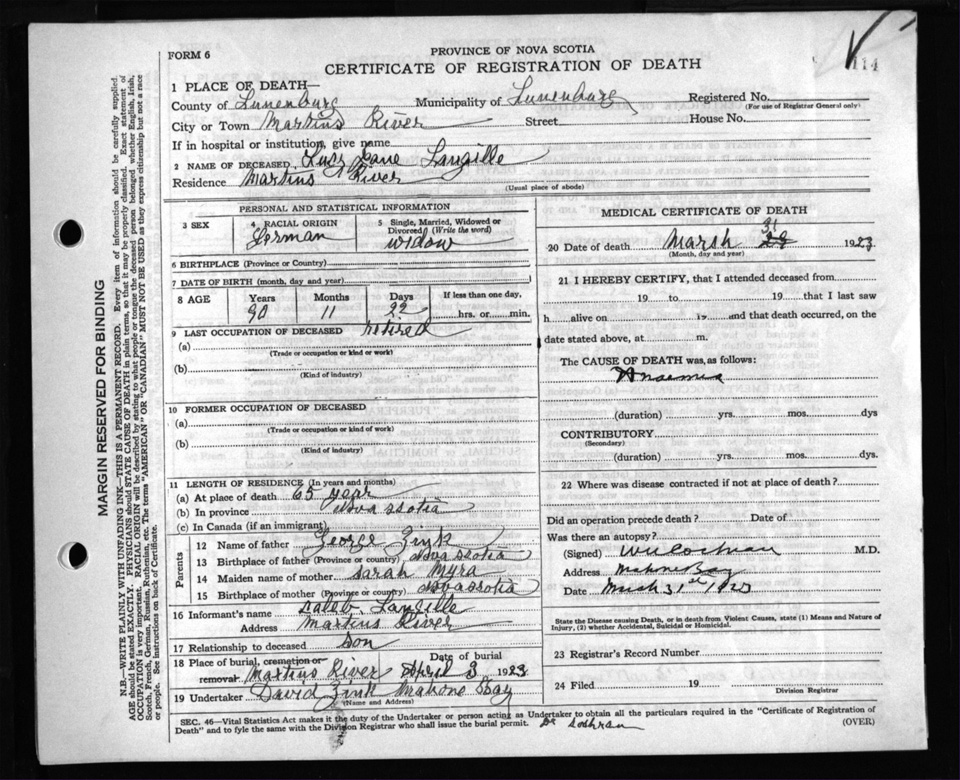 FORM 6
PROVINCE OF NOVA SCOTIA
CERTIFICATE OF REGISTRATION OF DEATH
114
1 PLACE OF DEATH—
County of Lunenburg Municipality of Lunenburg Registered No.
(For use of Registrar General only)
City or Town Martins River Street House No.
If in hospital or institution, give name
2 NAME OF DECEASED Lucy Jane Langille
Residence Martins River
(Usual place of abode)
PERSONAL AND STATISTICAL INFORMATION
3 SEX
4 RACIAL ORIGIN
German
5 Single, Married, Widowed or Divorced (Write the word)
widow
6 BIRTHPLACE (Province or Country)
7 DATE OF BIRTH (month, day and year)
8 AGE Years Months Days If less than one day,
90 11 22 hrs. or min.
9 LAST OCCUPATION OF DECEASED retired
(a)
(Trade or occupation or kind or work)
(b)
(Kind of industry)
10 FORMER OCCUPATION OF DECEASED
(a)
(Trade or occupation or kind or work)
(b)
(Kind of industry)
11 LENGTH OF RESIDENCE (In years and months)
(a) At place of death 65 year
(b) In province Nova Scotia
(c) In Canada (if an immigrant)
Parents
12 Name of father George Zink
13 Birthplace of father (Province or country) Nova Scotia
14 Maiden name of mother Sarah Myra
15 Birthplace of mother (Province or country) Nova Scotia
16 Informant's name Caleb Langille
Address Martins River
17 Relationship to deceased Son
18 Place of burial, cremation or Date of burial
removal Martins River April 3 1923
19 Undertaker David Zink Mahone Bay
(Name and Address)
MEDICAL CERTIFICATE OF DEATH
31
20 Date of death Marsh 29 1923
(Month, day and year)
21 I HEREBY CERTIFY, that I attended deceased from
19 to 19 that I last saw
h alive on 19 and that death occurred, on the
date stated above, at m.
The CAUSE OF DEATH was, as follows:
Anaemia
(duration) yrs. mos. dys
CONTRIBUTORY
(Secondary)
(duration) yrs. mos. dys.
22 Where was disease contracted if not at place of death?
Did an operation precede death? Date of
Was there an autopsy?
(Signed) W U Cochran M.D.
Address Mahone Bay
Date March 31st 1923
State the Disease causing Death, or in death from Violent Causes, state (1) Means and Nature of
Injury, (2) whether Accidental, Suicidal or Homicidal.
23 Registrar's Record Number
24 Filed 19
Division Registrar
SEC. 46—Vital Statistics Act makes it the duty of the Undertaker or person acting as Undertaker to obtain all the particulars required in the "Certificate of Registration of
Death" and to fyle the same with the Division Registrar who shall issue the burial permit. Dr Cochran (OVER)
MARGIN RESERVED FOR BINDING
N.B.—WRITE PLAINLY WITH UNFADING INK—THIS IS A PERMANENT RECORD. Every item of information should be carefully supplied.
AGE should be stated EXACTLY. PHYSICIANS should STATE CAUSE OF DEATH in plain terms, so that it may be properly classified. Exact statement of
OCCUPATION is very important. RACIAL ORIGIN will be described by stating to what people or tongue the deceased person belonged whether English, Irish,
Scotch, French, German, Russian, Ruthenian, etc. The terms "AMERICAN" OR "CANADIAN" MUST NOT BE USED as they express citizenship but not a race
or people. See instructions on back of Certificate.